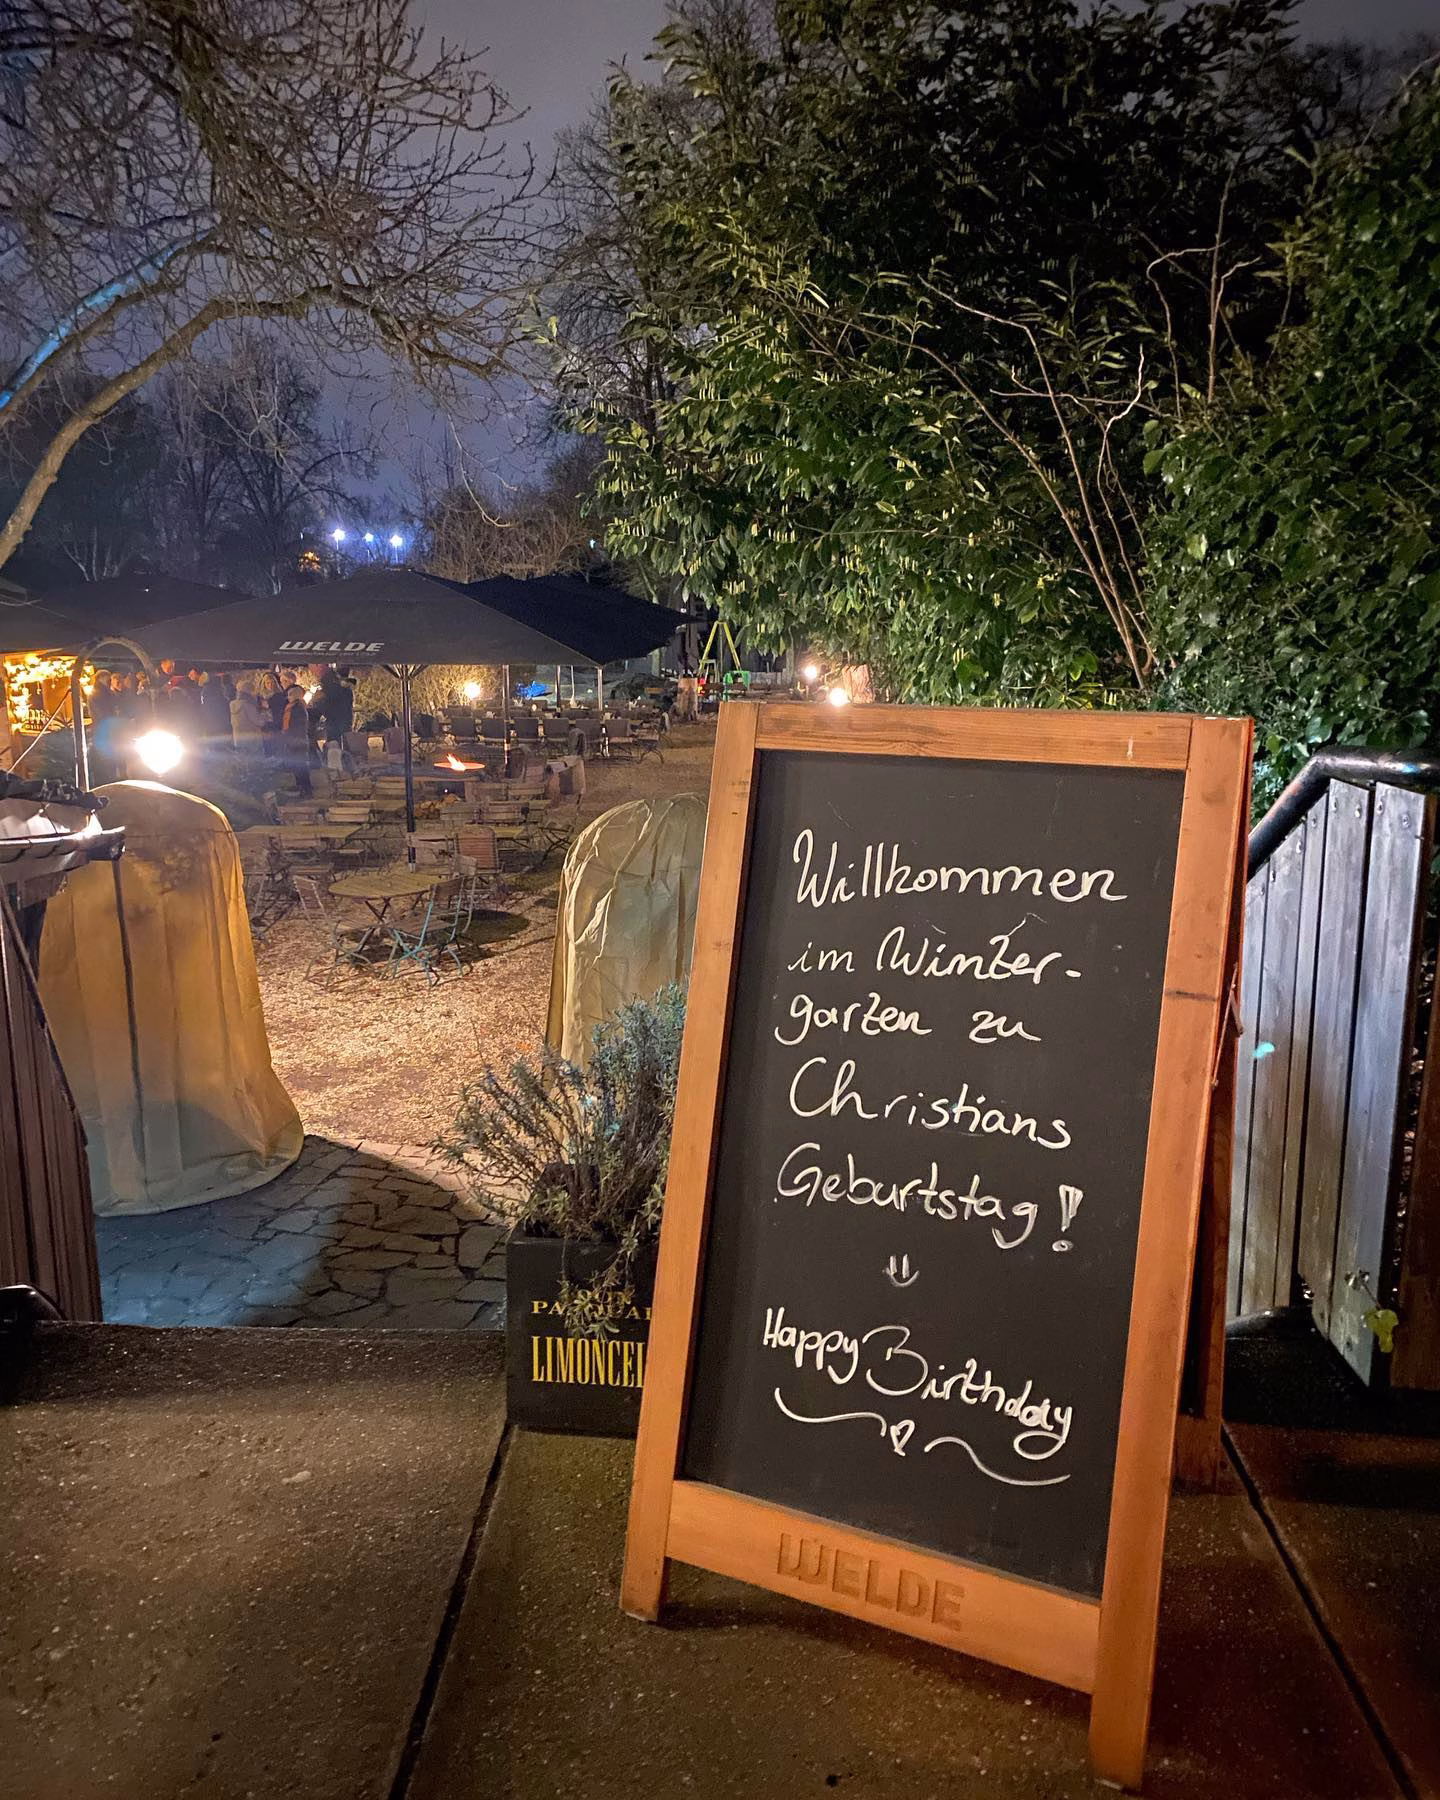 WELDE
Willkommen
im Winter-
garten zu
Christians
Geburtstag!
Happy Birthday
WELDE
LIMONCEL